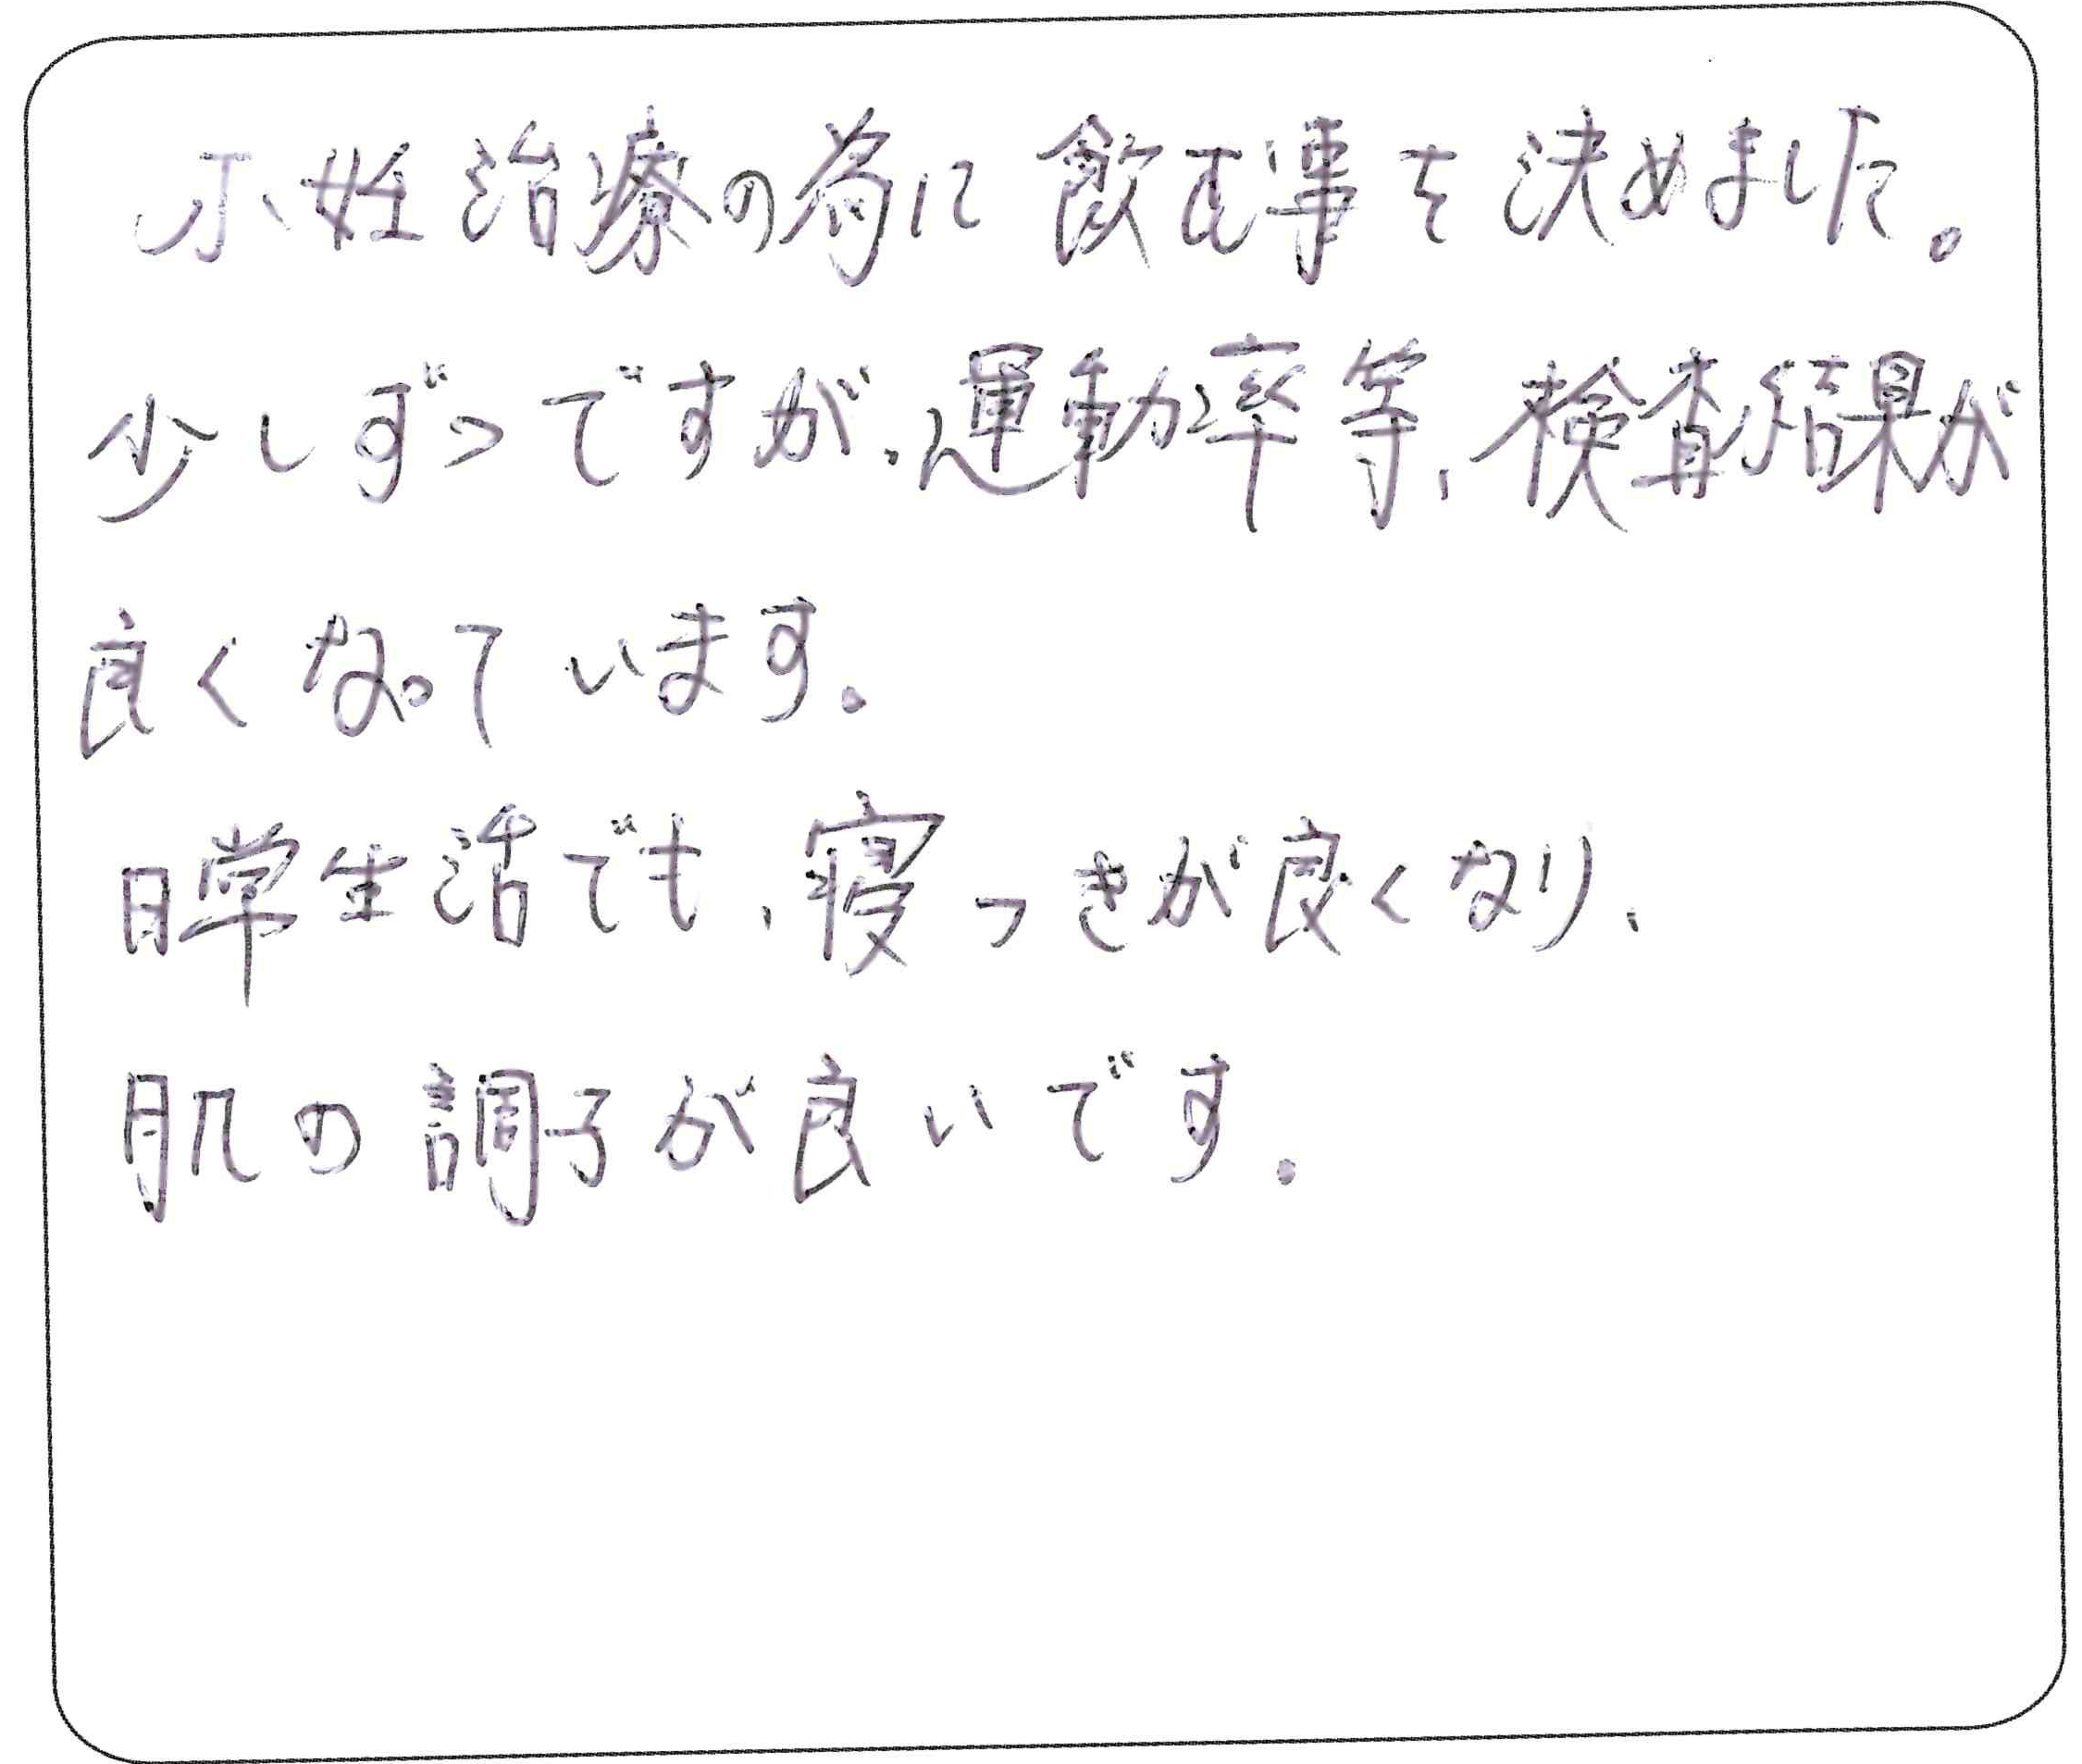 不妊治療の為に飲む事を決めました。
少しずつですが、運動率等、検査結果が
良くなっています。
日常生活でも、寝つきが良くなり、
肌の調子が良いです。